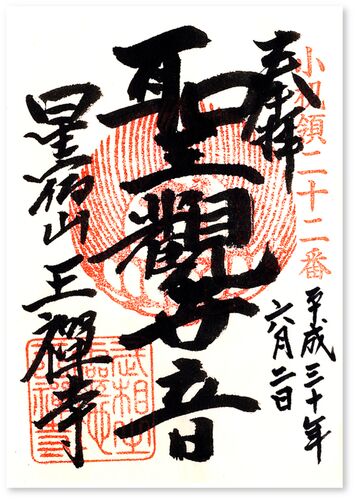 小机領二十二番
奉拝
平成三十年
六月二日
聖觀世音
星宿山王禅寺